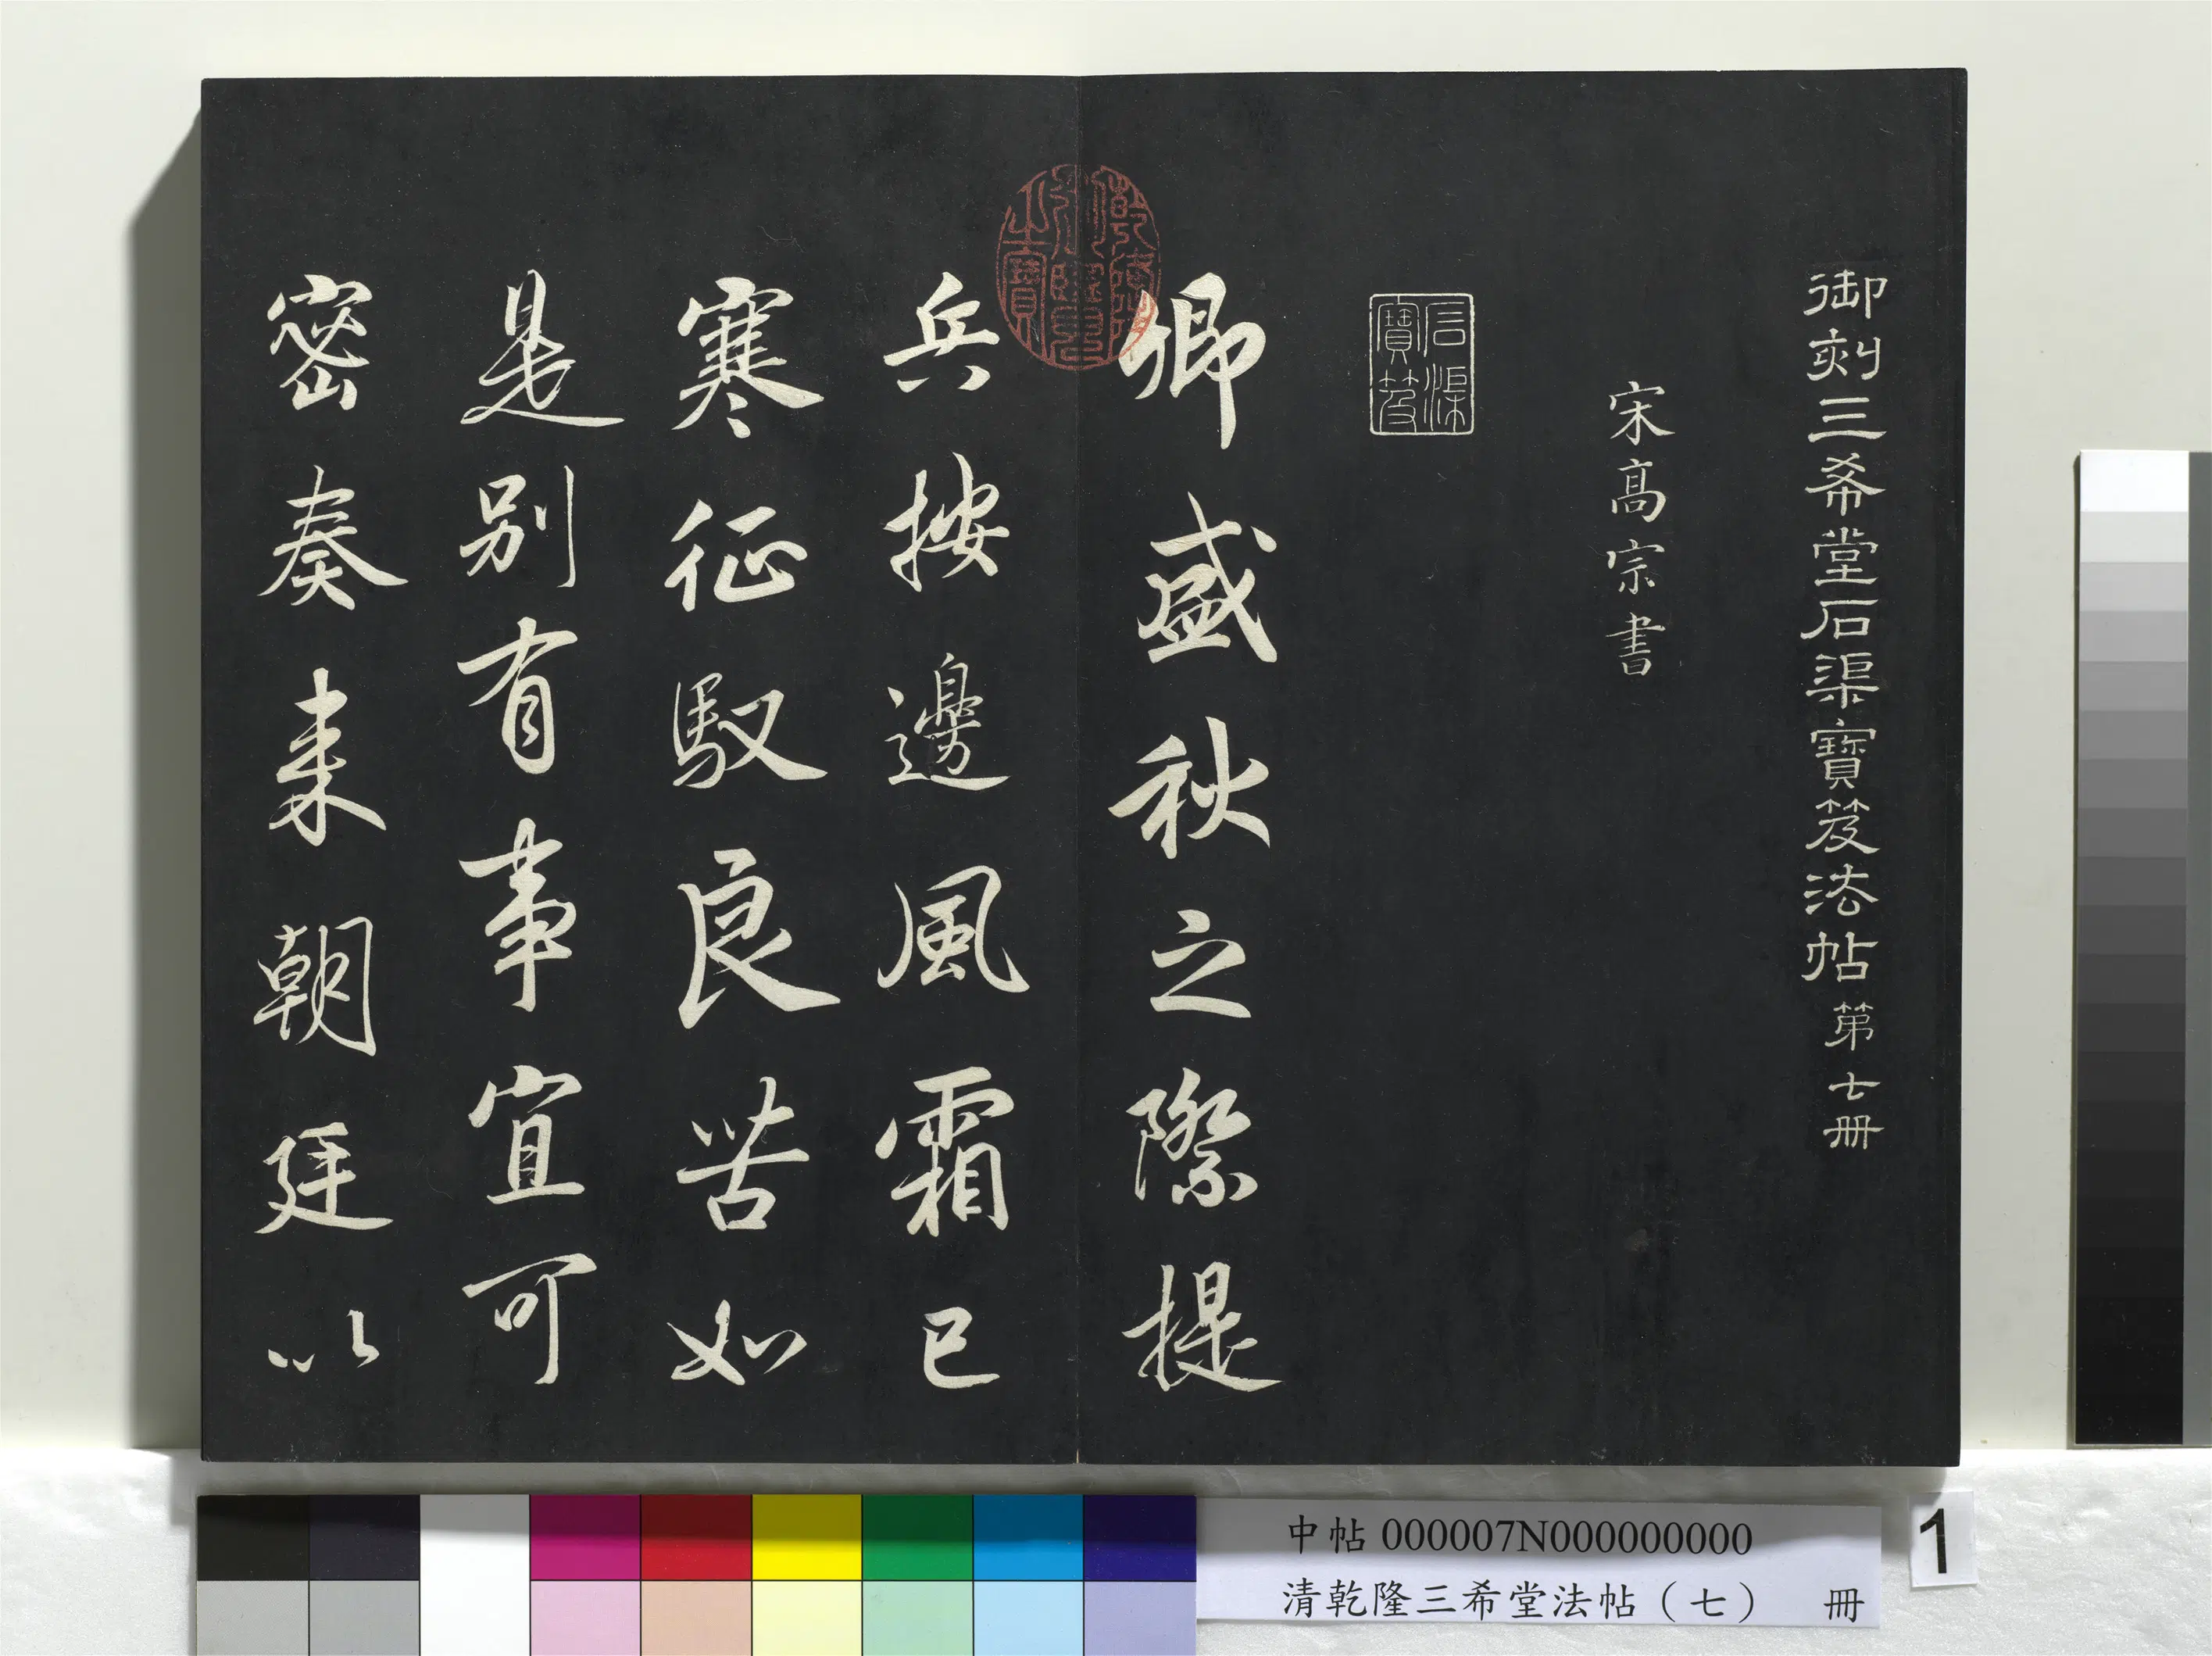 御刻三希堂石渠寶笈法帖第七冊
宋高宗書
石渠寶笈
卿盛秋之際提
兵按邊風霜已
寒征馭良苦如
是別有事宜可
密奏来朝廷以
中帖 000007N000000000
清乾隆三希堂法帖（七） 冊
1